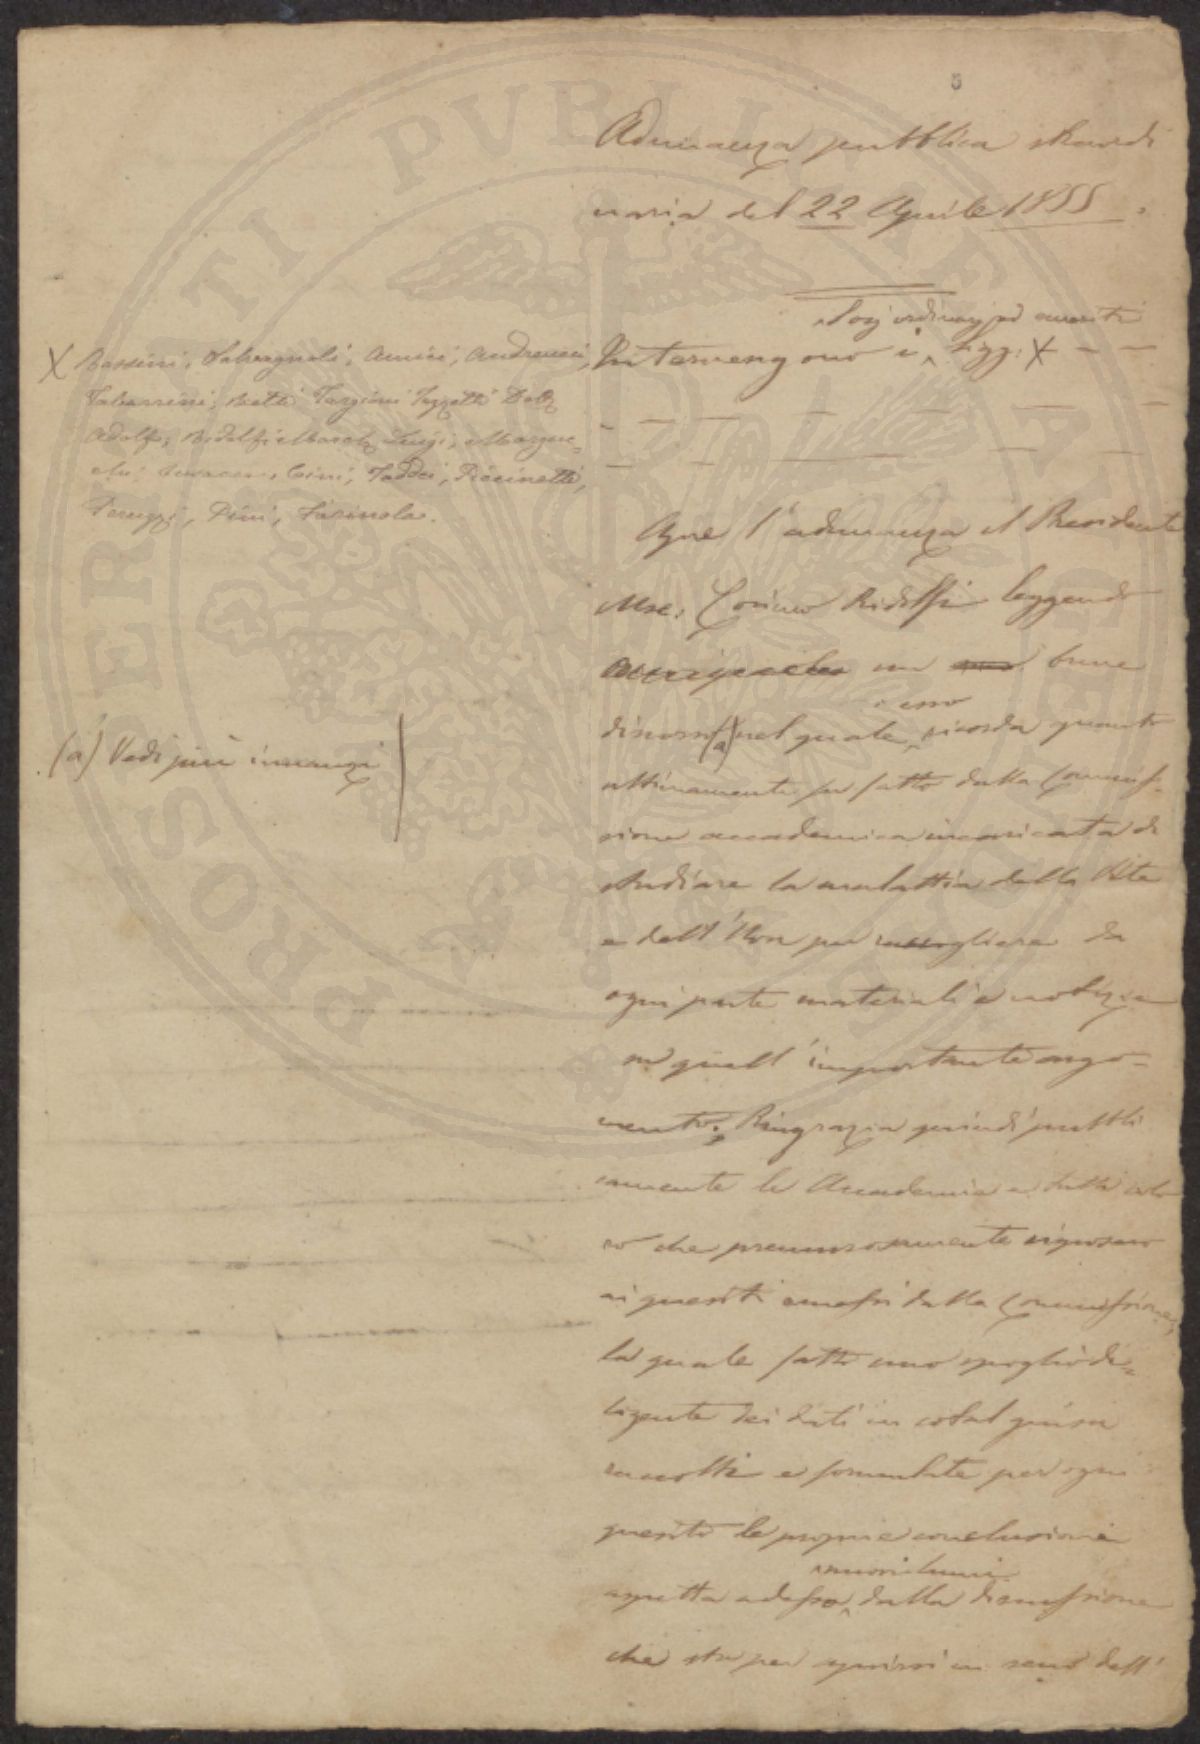 5
Adunanza pubblica straordi
naria del 22 Aprile 1855.
Socj ordinarj ed emeriti
Intervengono i Sigg: X
X Bassini, Salvagnoli, Amici, Andreucci,
Tabarrini, Targioni Tozzetti Dott
Adolfo, Ridolfi March Luigi,
Cini, Taddei,
Peruzzi, Pini, Farinola.
Apre l'adunanza il Presidente
Mse. Cosimo Ridolfi leggendo
un breve
esso
discorso (a) nel quale ricorda quanto
ultimamente fu fatto dalla Commis-
sione accademica incaricata di
studiare la malattia della Vite
(a) Vedi più innanzi
e dell'Uva per raccogliere da
ogni parte materiali e notizie
su quell'importante argo-
mento. Ringrazia quindi pubbli
camente le Accademie e tutti colo
ro che premurosamente risposero
ai quesiti emessi dalla Commissione,
la quale fatto uno spoglio di-
ligente dei dati in cotal guisa
raccolti e formulate per ogni
quesito le proprie conclusioni
nuovi lumi
aspetta adesso dalla discussione
che sta per aprirsi in seno dell'
PROSPERITATI PUBLICAE AUGENDAE